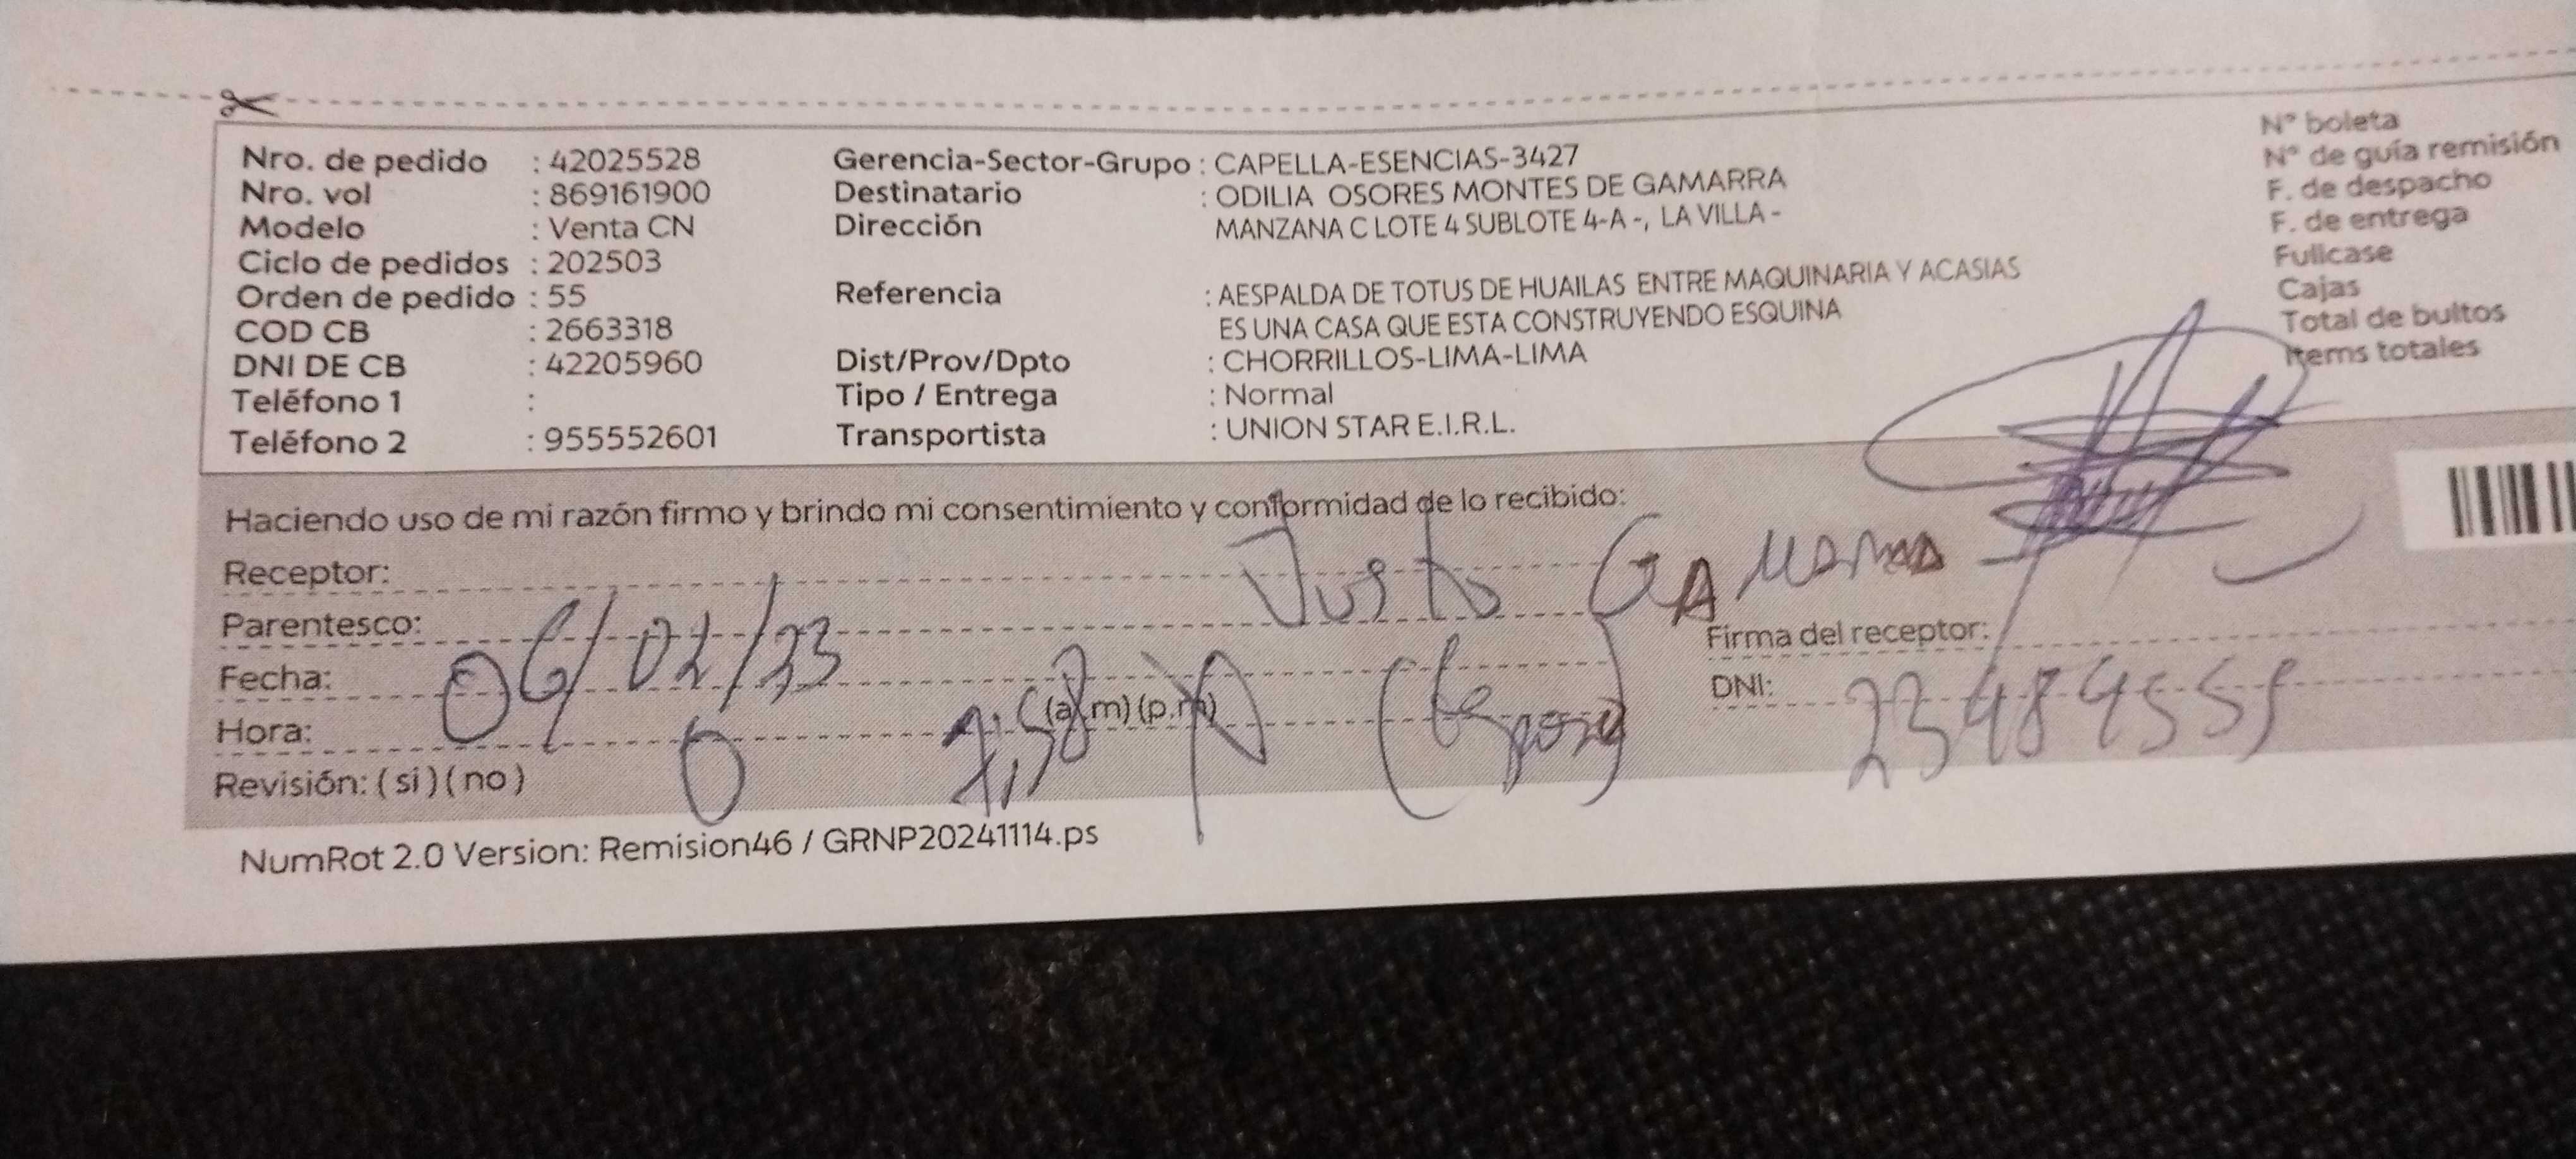 Nro. de pedido : 42025528
Nro. vol : 869161900
Modelo : Venta CN
Ciclo de pedidos : 202503
Orden de pedido : 55
COD CB : 2663318
DNI DE CB : 42205960
Teléfono 1 :
Teléfono 2 : 955552601
Gerencia-Sector-Grupo : CAPELLA-ESENCIAS-3427
Destinatario : ODILIA OSORES MONTES DE GAMARRA
Dirección MANZANA C LOTE 4 SUBLOTE 4-A -, LA VILLA -
Referencia : AESPALDA DE TOTUS DE HUAILAS ENTRE MAQUINARIA Y ACASIAS
ES UNA CASA QUE ESTA CONSTRUYENDO ESQUINA
Dist/Prov/Dpto : CHORRILLOS-LIMA-LIMA
Tipo / Entrega : Normal
Transportista : UNION STAR E.I.R.L.
N° boleta
N° de guía remisión
F. de despacho
F. de entrega
Fullcase
Cajas
Total de bultos
Items totales
Haciendo uso de mi razón firmo y brindo mi consentimiento y conformidad de lo recibido:
Receptor: Justo
Parentesco:
Fecha: 06/02/
Hora: (a.m) (p.m)
Revisión: (si) (no)
Firma del receptor:
DNI:
NumRot 2.0 Version: Remision46 / GRNP20241114.ps